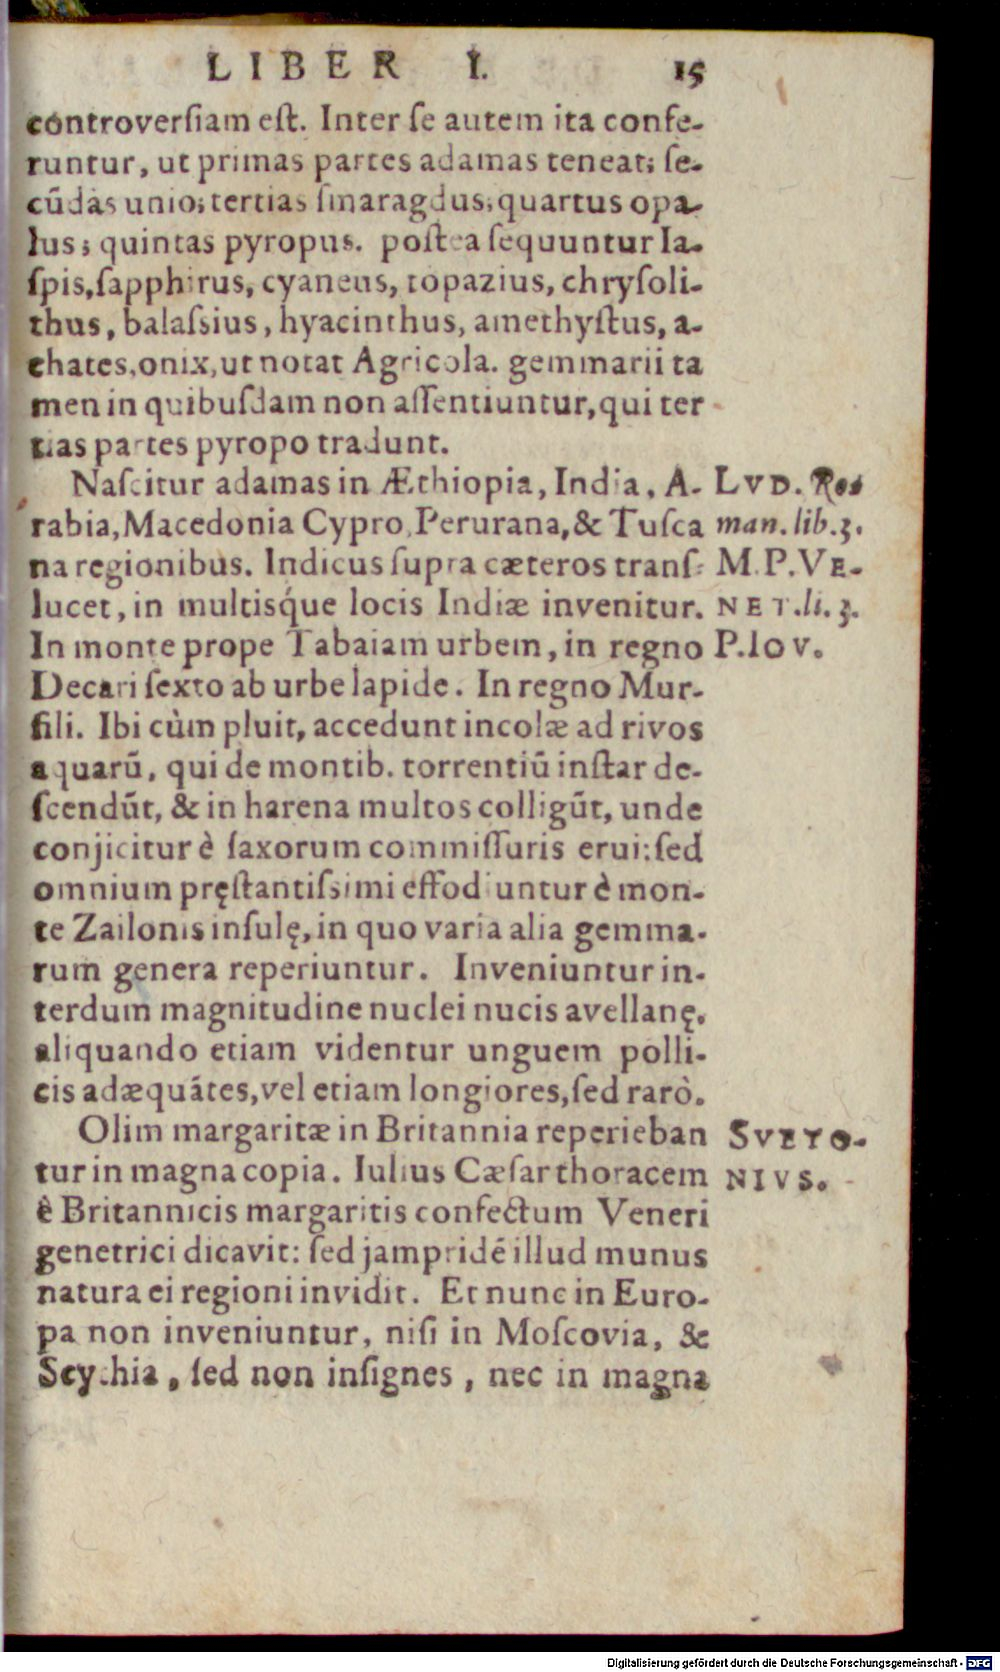 LIBER I. 15
controverſiam eſt. Inter ſe autem ita confe-
runtur, ut primas partes adamas teneat; ſe-
cūdas unio; tertias ſmaragdus; quartus opa-
lus; quintas pyropus. poſtea ſequuntur Ia-
ſpis, ſapphirus, cyaneus, topazius, chryſoli-
thus, balaſsius, hyacinthus, amethyſtus, a-
chates, onix, ut notat Agricola. gemmarii ta
men in quibuſdam non aſſentiuntur, qui ter
tias partes pyropo tradunt.
Naſcitur adamas in Æthiopia, India, A-
rabia, Macedonia Cypro, Perurana, & Tuſca
na regionibus. Indicus ſupra cæteros tranſ-
lucet, in multisq́ue locis Indiæ invenitur.
In monte prope Tabaiam urbem, in regno
Decari ſexto ab urbe lapide. In regno Mur-
fili. Ibi cùm pluit, accedunt incolæ ad rivos
aquarū, qui de montib. torrentiū inſtar de-
ſcendūt, & in harena multos colligūt, unde
conjicitur è ſaxorum commiſſuris erui: ſed
omnium pręſtantiſsimi effodiuntur è mon-
te Zailonis inſulę, in quo varia alia gemma-
rum genera reperiuntur. Inveniuntur in-
terdum magnitudine nuclei nucis avellanę.
aliquando etiam videntur unguem polli-
cis adæquātes, vel etiam longiores, ſed rarò.
Olim margaritæ in Britannia reperieban
tur in magna copia. Iulius Cæſar thoracem
è Britannicis margaritis confectum Veneri
genetrici dicavit: ſed jampridē illud munus
natura ei regioni invidit. Et nunc in Euro-
pa non inveniuntur, niſi in Moſcovia, &
Scythia, ſed non inſignes, nec in magna
LVD. Ro
man. lib. 3.
M. P. VE-
NET. li. 3.
P. IOV.
SVETO-
NIVS.
Digitalisierung gefördert durch die Deutsche Forschungsgemeinschaft - DFG